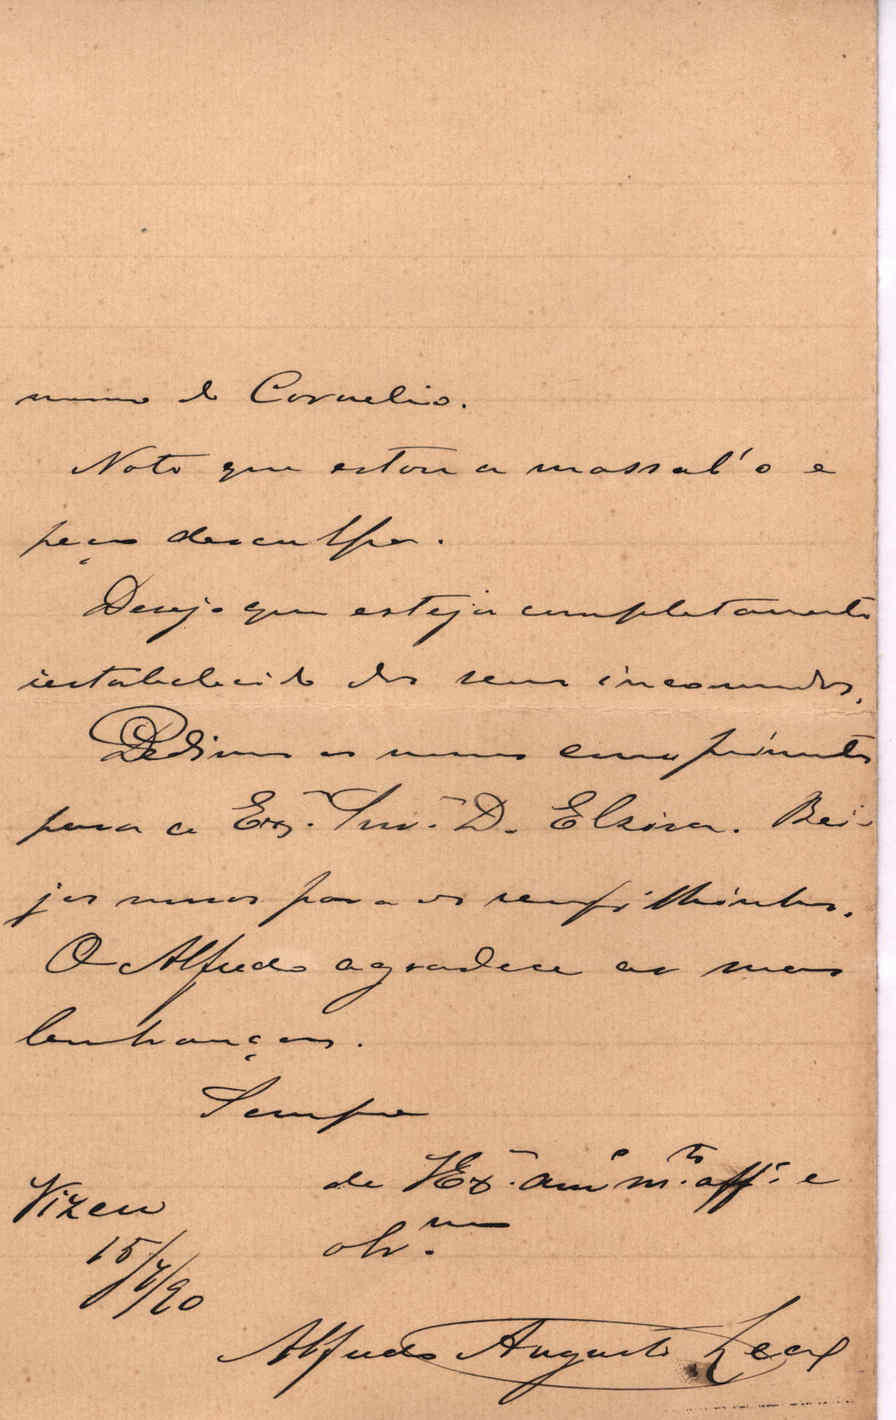 mimo do Cornelio.
Noto que estou a massal'o e
peço desculpa.
Desejo que esteja completamente
restabelecido dos seus incomodos.
Dedimos os nossos cumprimentos
para a Ex.ª Snr.ª D. Elzira. Bei-
jos nossos para os seus filhinhos.
O Alfredo agradece as suas
lembranças.
Sempre
de VEx.ª am.º m.to aff.º e
obr.mo
Vizeu
15/7/90
Alfredo Augusto Leal